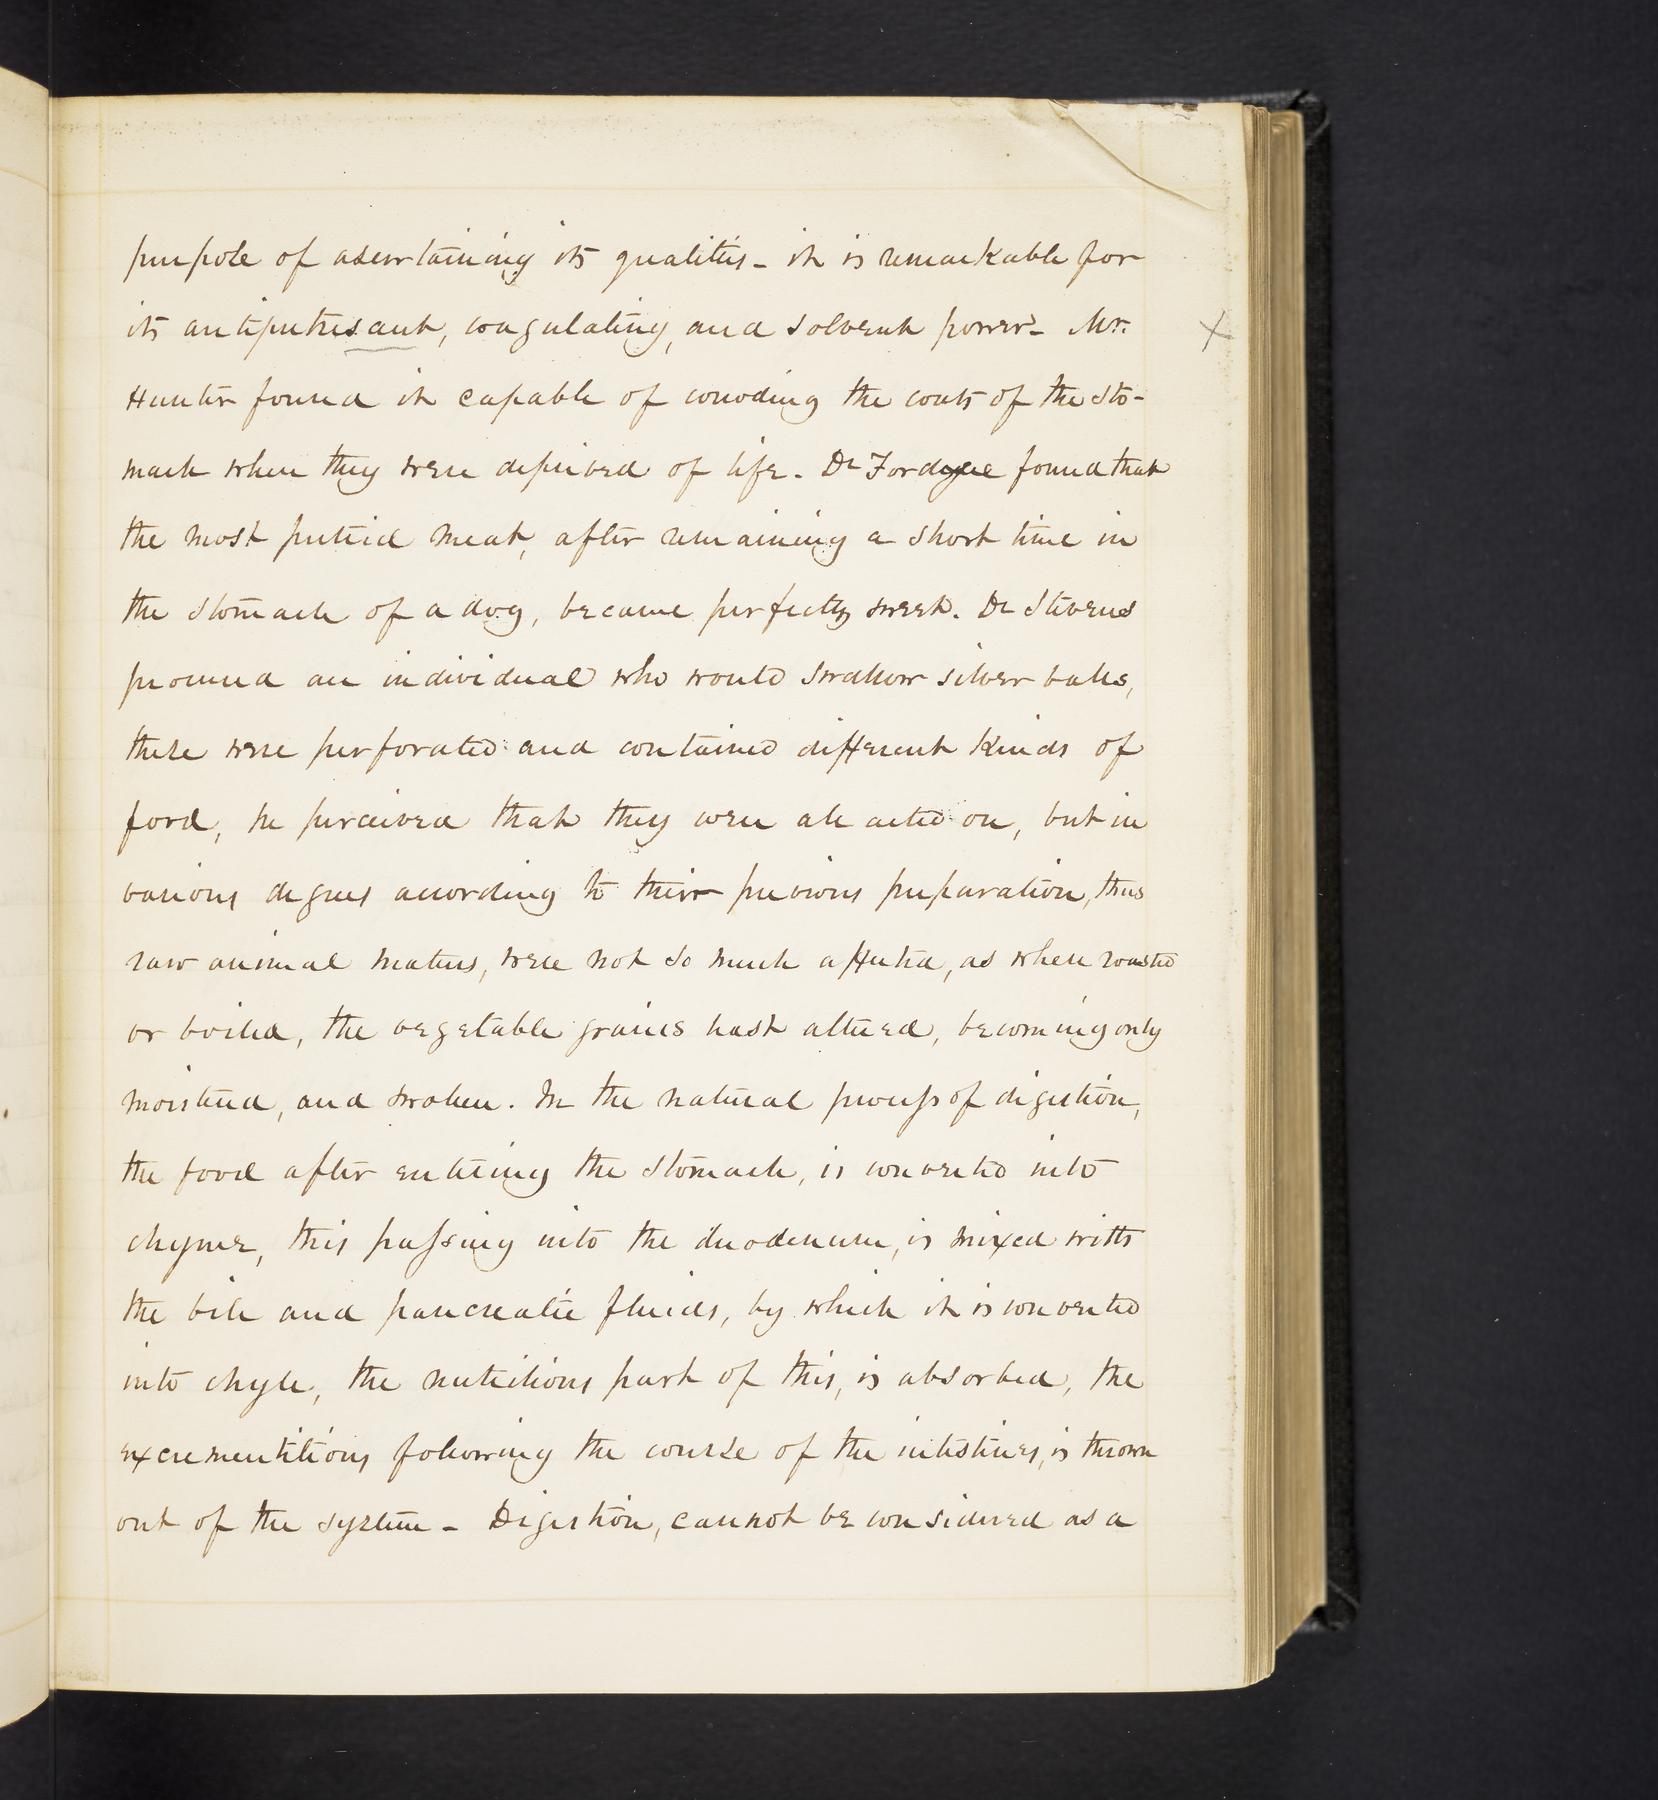 purpose of asertaining its qualities - it is remarkable for
its antiputrisant, coagulating, and solvent power - Mr.
Hunter found it capable of corroding the coats of the sto-
mach when they were deprived of life. Dr Fordyce found that
the most putrid meat, after remaining a short time in
the stomach of a dog, became perfectly sweet. Dr Stevens
procured an individual who would swallow silver balls,
these were perforated and contained different kinds of
food, he perceived that they were all acted on, but in
various degrees according to their previous preparation, thus
raw animal matters, were not so much affected, as when roasted
or boiled, the vegetable grains least altered, becoming only
moistened, and swollen. In the natural process of digestion,
the food after entering the stomach, is converted into
chyme, this passing into the duodenum, is mixed with
the bile and pancreatic fluids, by which it is converted
into chyle, the nutritious part of this, is absorbed, the
excrementitious following the course of the intestines, is thrown
out of the system - Digestion, cannot be considered as a